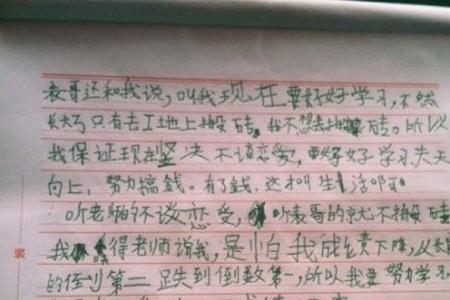 表哥还和我说,叫我现在要好好学习,不然
长大了只有去工地上搬砖。我不想去搬砖。所以
我保证现在坚决不谈恋爱,要好好学习天天
向上,努力搞钱。有了钱,这才叫生活叩可
听老师的不谈恋爱,听表哥的就不搬砖
我得老师说我,是怕我成绩下降,从长
的倒数第二跌到倒数第一,所以我要努力学习,